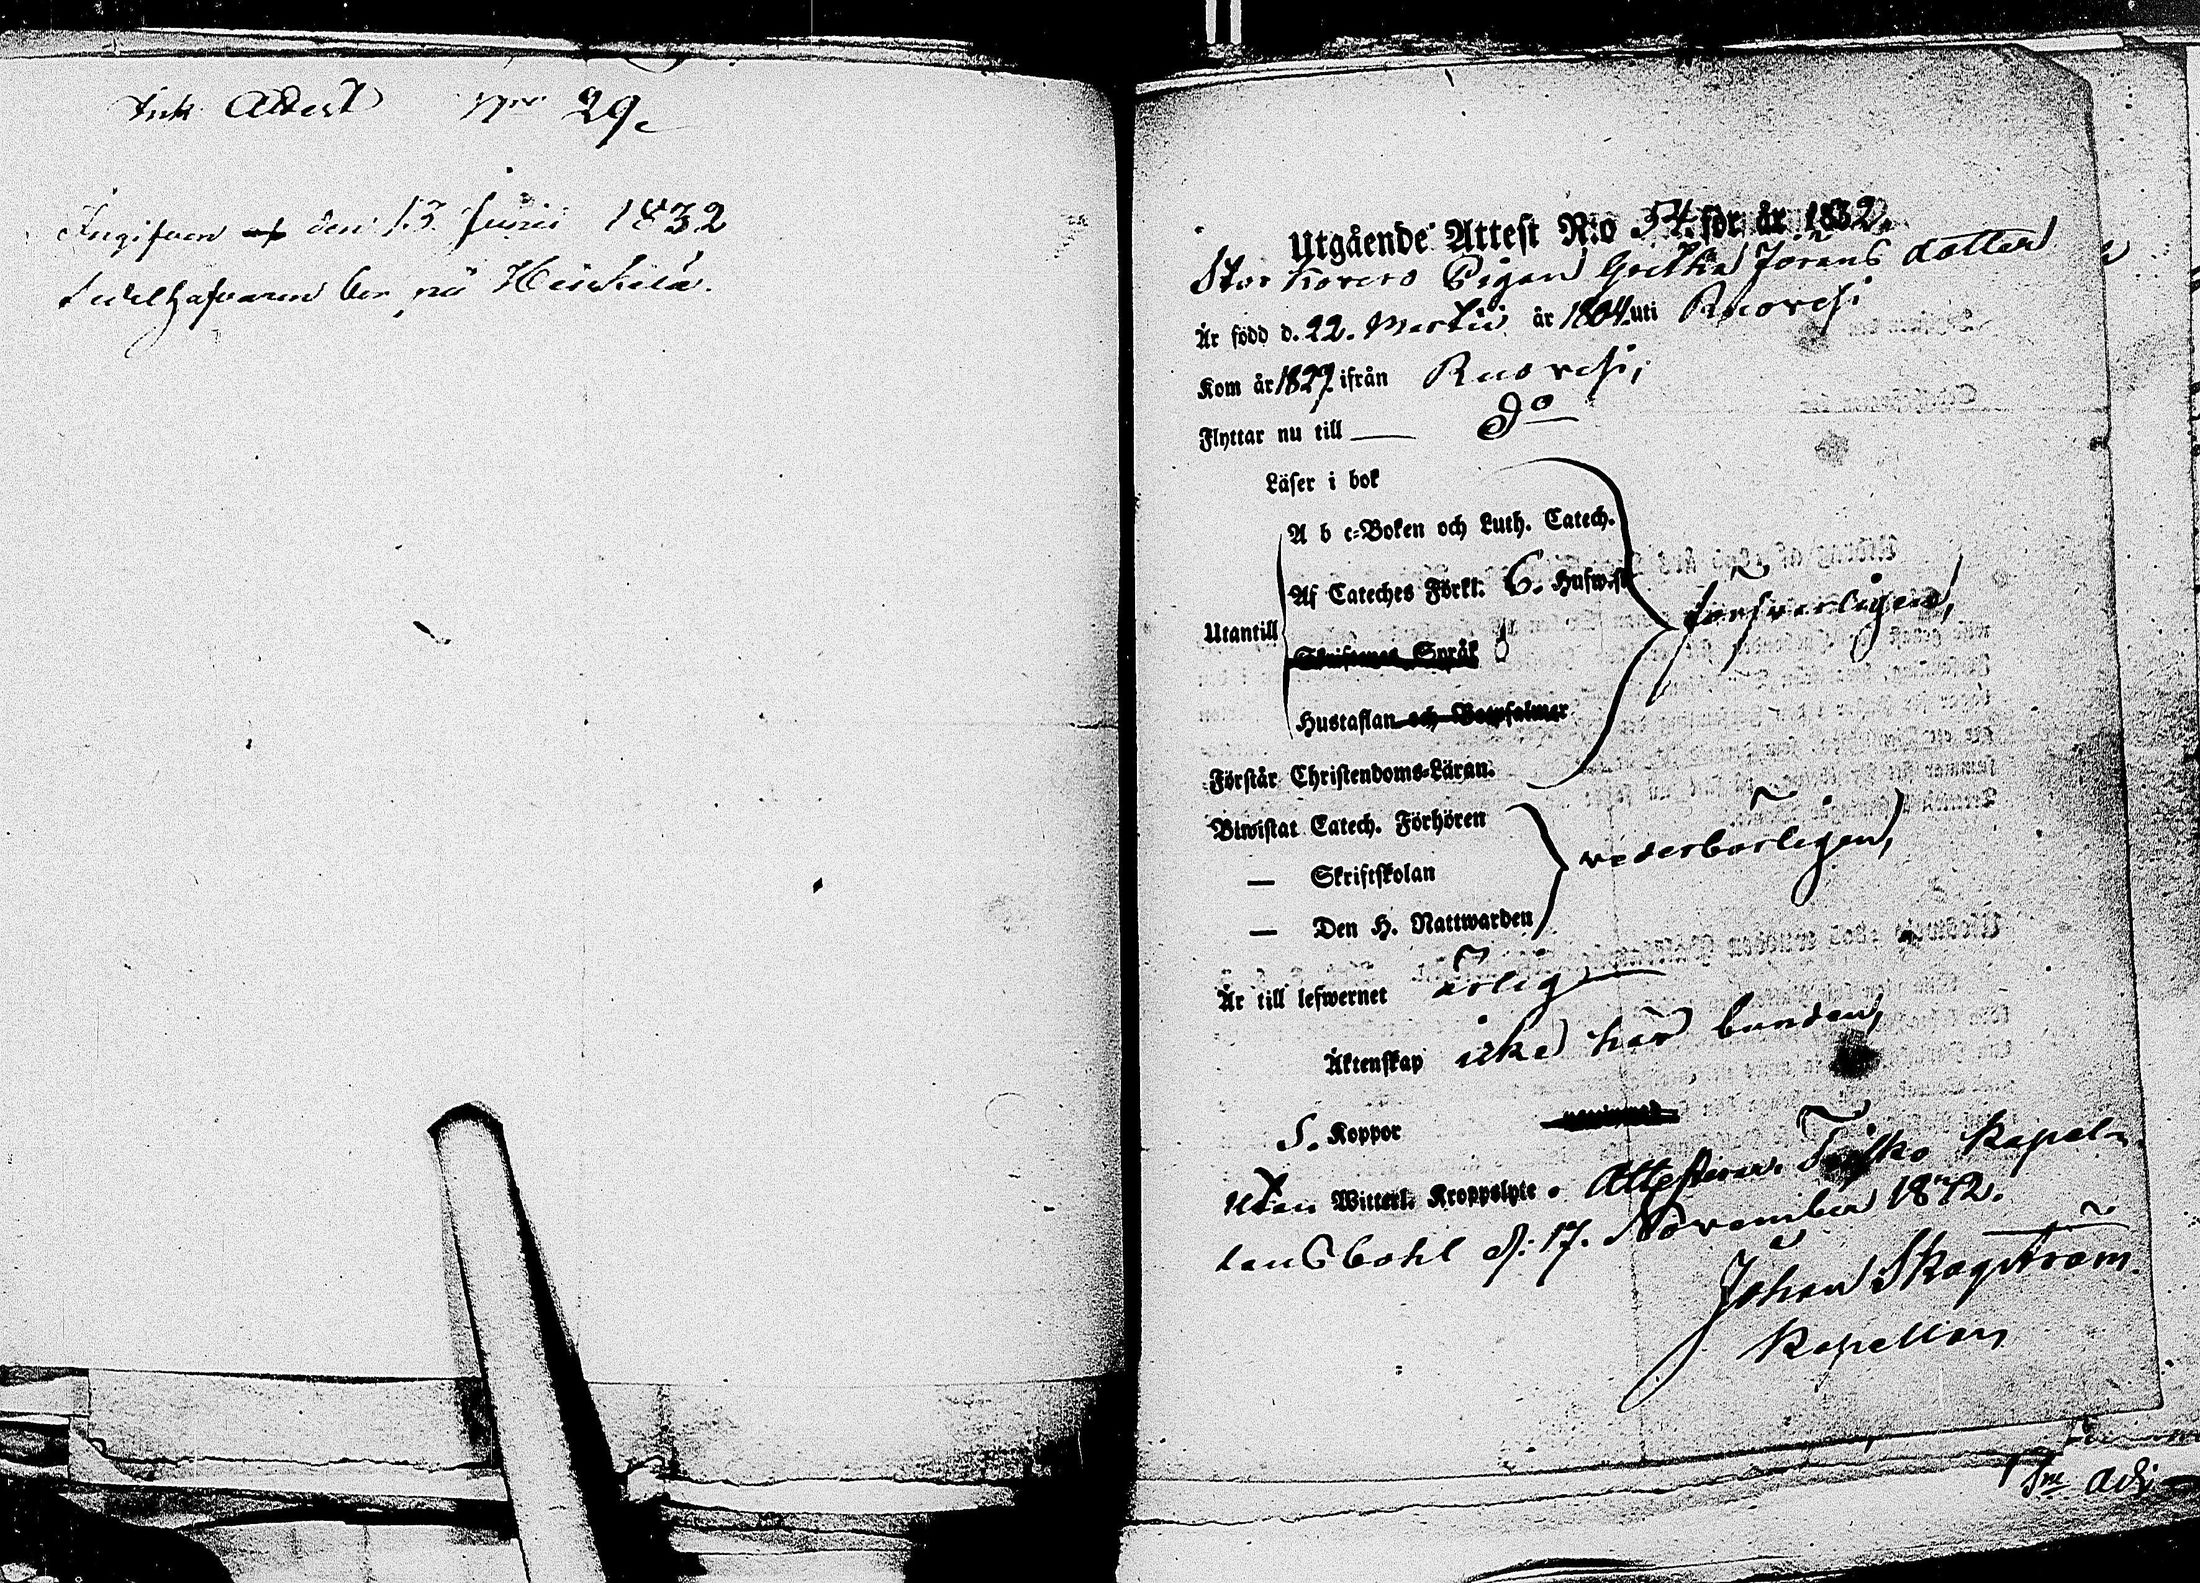 Ink Attest Nro 29.
Ingifven den 13 Junii 1832
Sedelhafvaren bor på Heickilä.
Utgående Attest N:o 54. för år 1832.
Storkorero Pigan Gretha Jörans dotter
Är född d. 22. Martii år 1804. uti Ruovesi
Kom år 1827. ifrån Ruovesi,
Flyttar nu till — do
Läser i bok
A b c-Boken och Luth. Catech.
Af Cateches Förkl. 6. Hufwst.
försvarligen,
Utantill
Skriftenes Språk
Hustaflan och Botpsalmer
Förstår Christendoms-Läran.
Biwistat Catech. Förhören
vederbörligen,
— Skriftskolan
— Den H. Nattwarden
Är till lefwernet ärlig
Äktenskap icke här bunden,
S. Koppor
utan Witterl. Kroppslyte. Attesterar. Teisko Kapel-
lansbohl d: 17. November 1832.
Johan Skogström
Kapellan